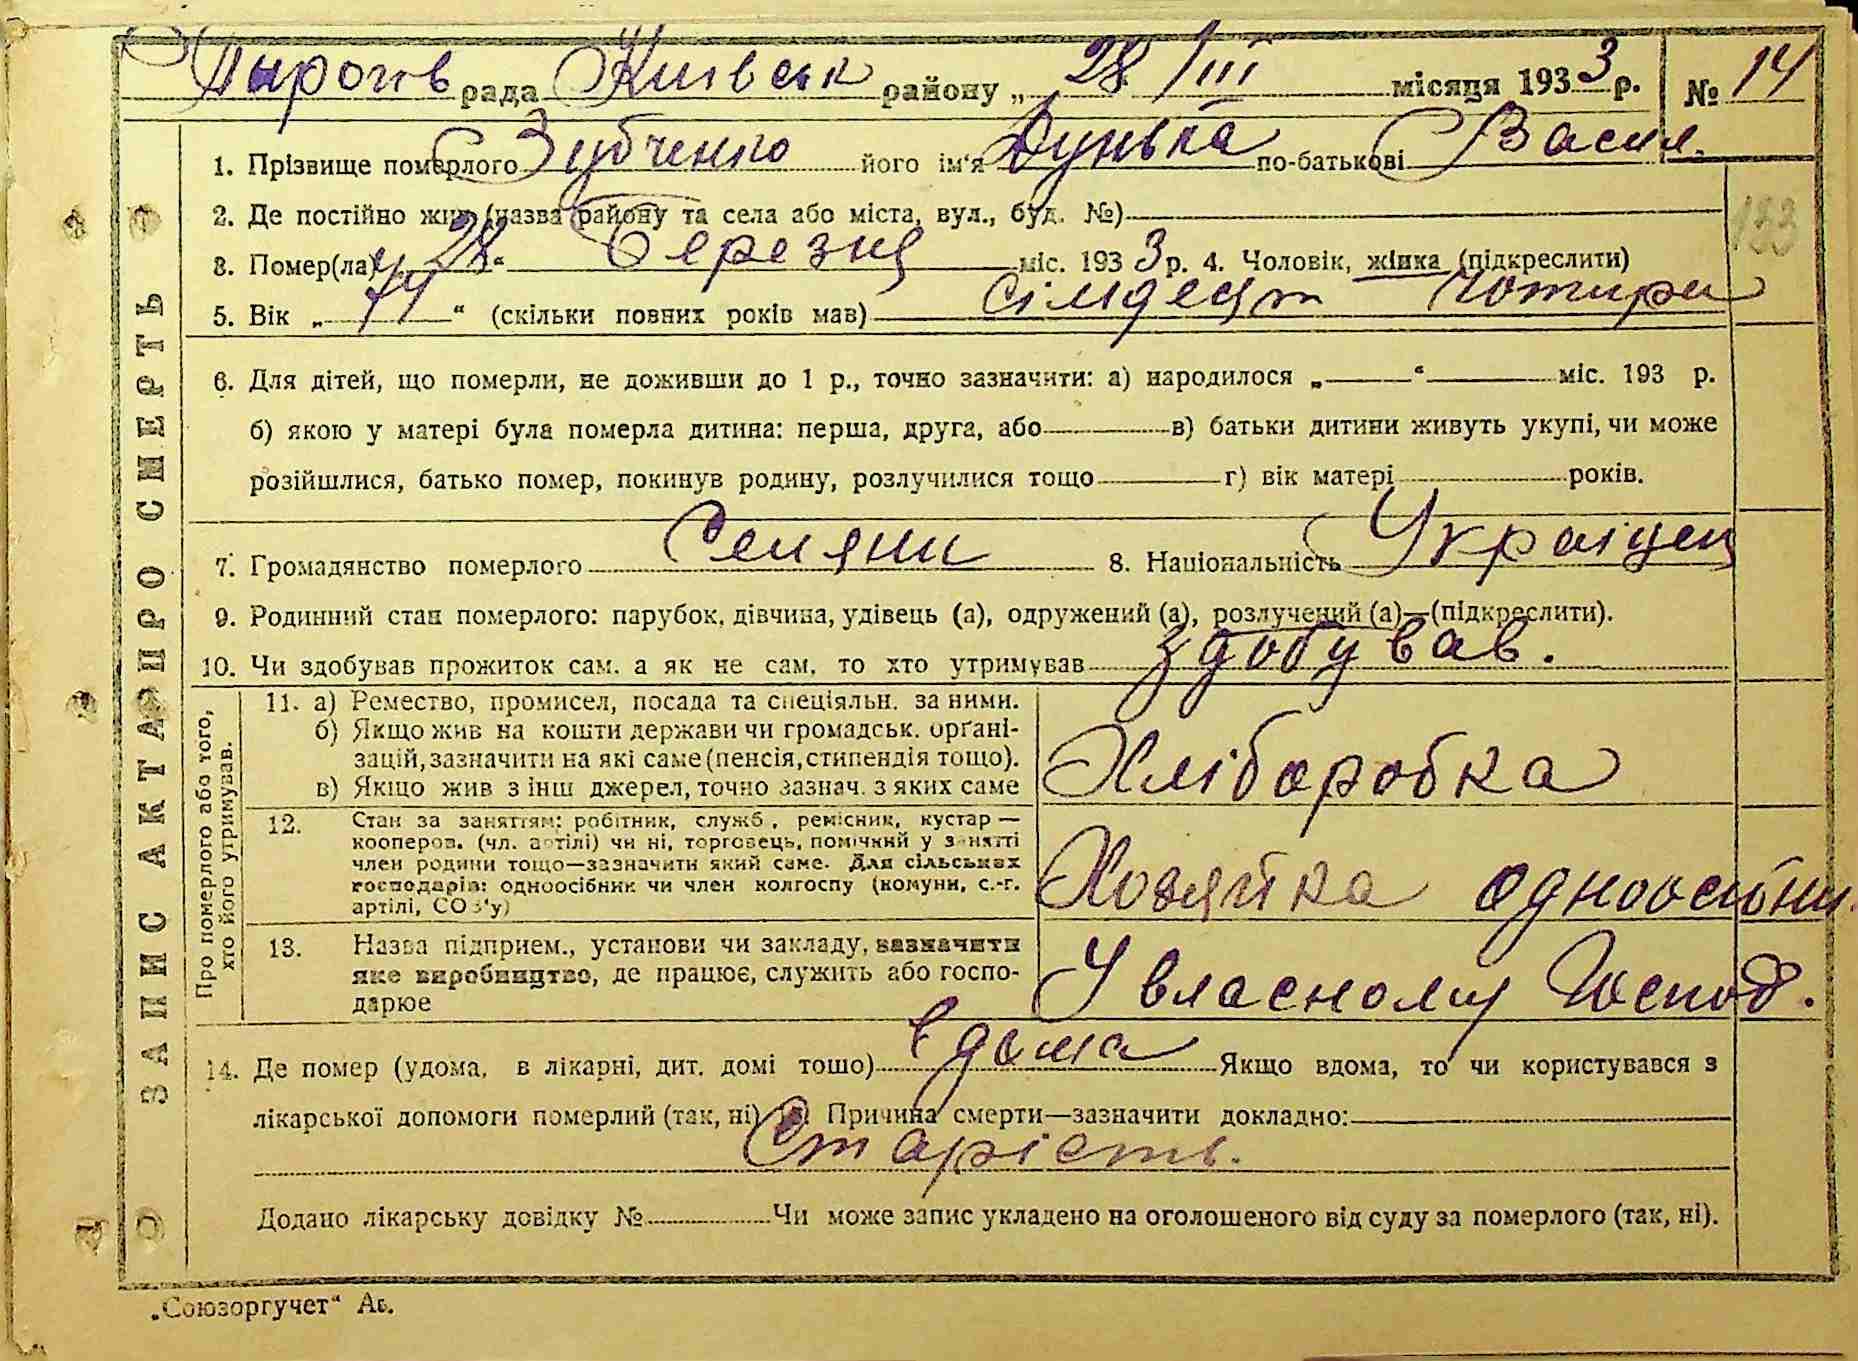 Пирогів рада Київськ району „ 28 / III місяця 1933 р. № 14
1. Прізвище померлого Зубченко його ім'я Дунька по-батькові Васил.
2. Де постійно жив (назва району та села або міста, вул., буд. №)
133
3. Помер(ла) „ 28 “ Березня міс. 1933 р. 4. Чоловік, жінка (підкреслити)
5. Вік „ 74 “ (скільки повних років мав) сімдесят чотири
6. Для дітей, що померли, не доживши до 1 р., точно зазначити: а) народилося „ “ міс. 193 р.
б) якою у матері була померла дитина: перша, друга, або в) батьки дитини живуть укупі, чи може
розійшлися, батько помер, покинув родину, розлучилися тощо г) вік матері років.
7. Громадянство померлого Селяни 8. Національність Українец
9. Родинний стан померлого: парубок, дівчина, удівець (а), одружений (а), розлучений (а)—(підкреслити).
10. Чи здобував прожиток сам, а як не сам, то хто утримував здобував.
ЗАПИС АКТА ПРО СМЕРТЬ
Про померлого або того, хто його утримував.
11. а) Ремество, промисел, посада та спеціяльн. за ними.
б) Якщо жив на кошти держави чи громадськ. органі-
зацій, зазначити на які саме (пенсія, стипендія тощо).
в) Якщо жив з інш джерел, точно зазнач. з яких саме
Хліборобка
12. Стан за заняттям: робітник, служб., ремісник, кустар —
кооперов. (чл. артілі) чи ні, торговець, помічний у занятті
член родини тощо—зазначити який саме. Для сільських
господарів: одноосібник чи член колгоспу (комуни, с.-г.
артілі, СОЗ'у)
Хозяйка одноосібни.
13. Назва підприєм., установи чи закладу, зазначити
яке виробництво, де працює, служить або госпо-
дарює
У власному Господ.
14. Де помер (удома, в лікарні, дит. домі тощо) вдома Якщо вдома, то чи користувався з
лікарської допомоги померлий (так, ні) Причина смерти—зазначити докладно:
Старість.
Додано лікарську довідку № Чи може запис укладено на оголошеного від суду за померлого (так, ні).
„Союзоргучет“